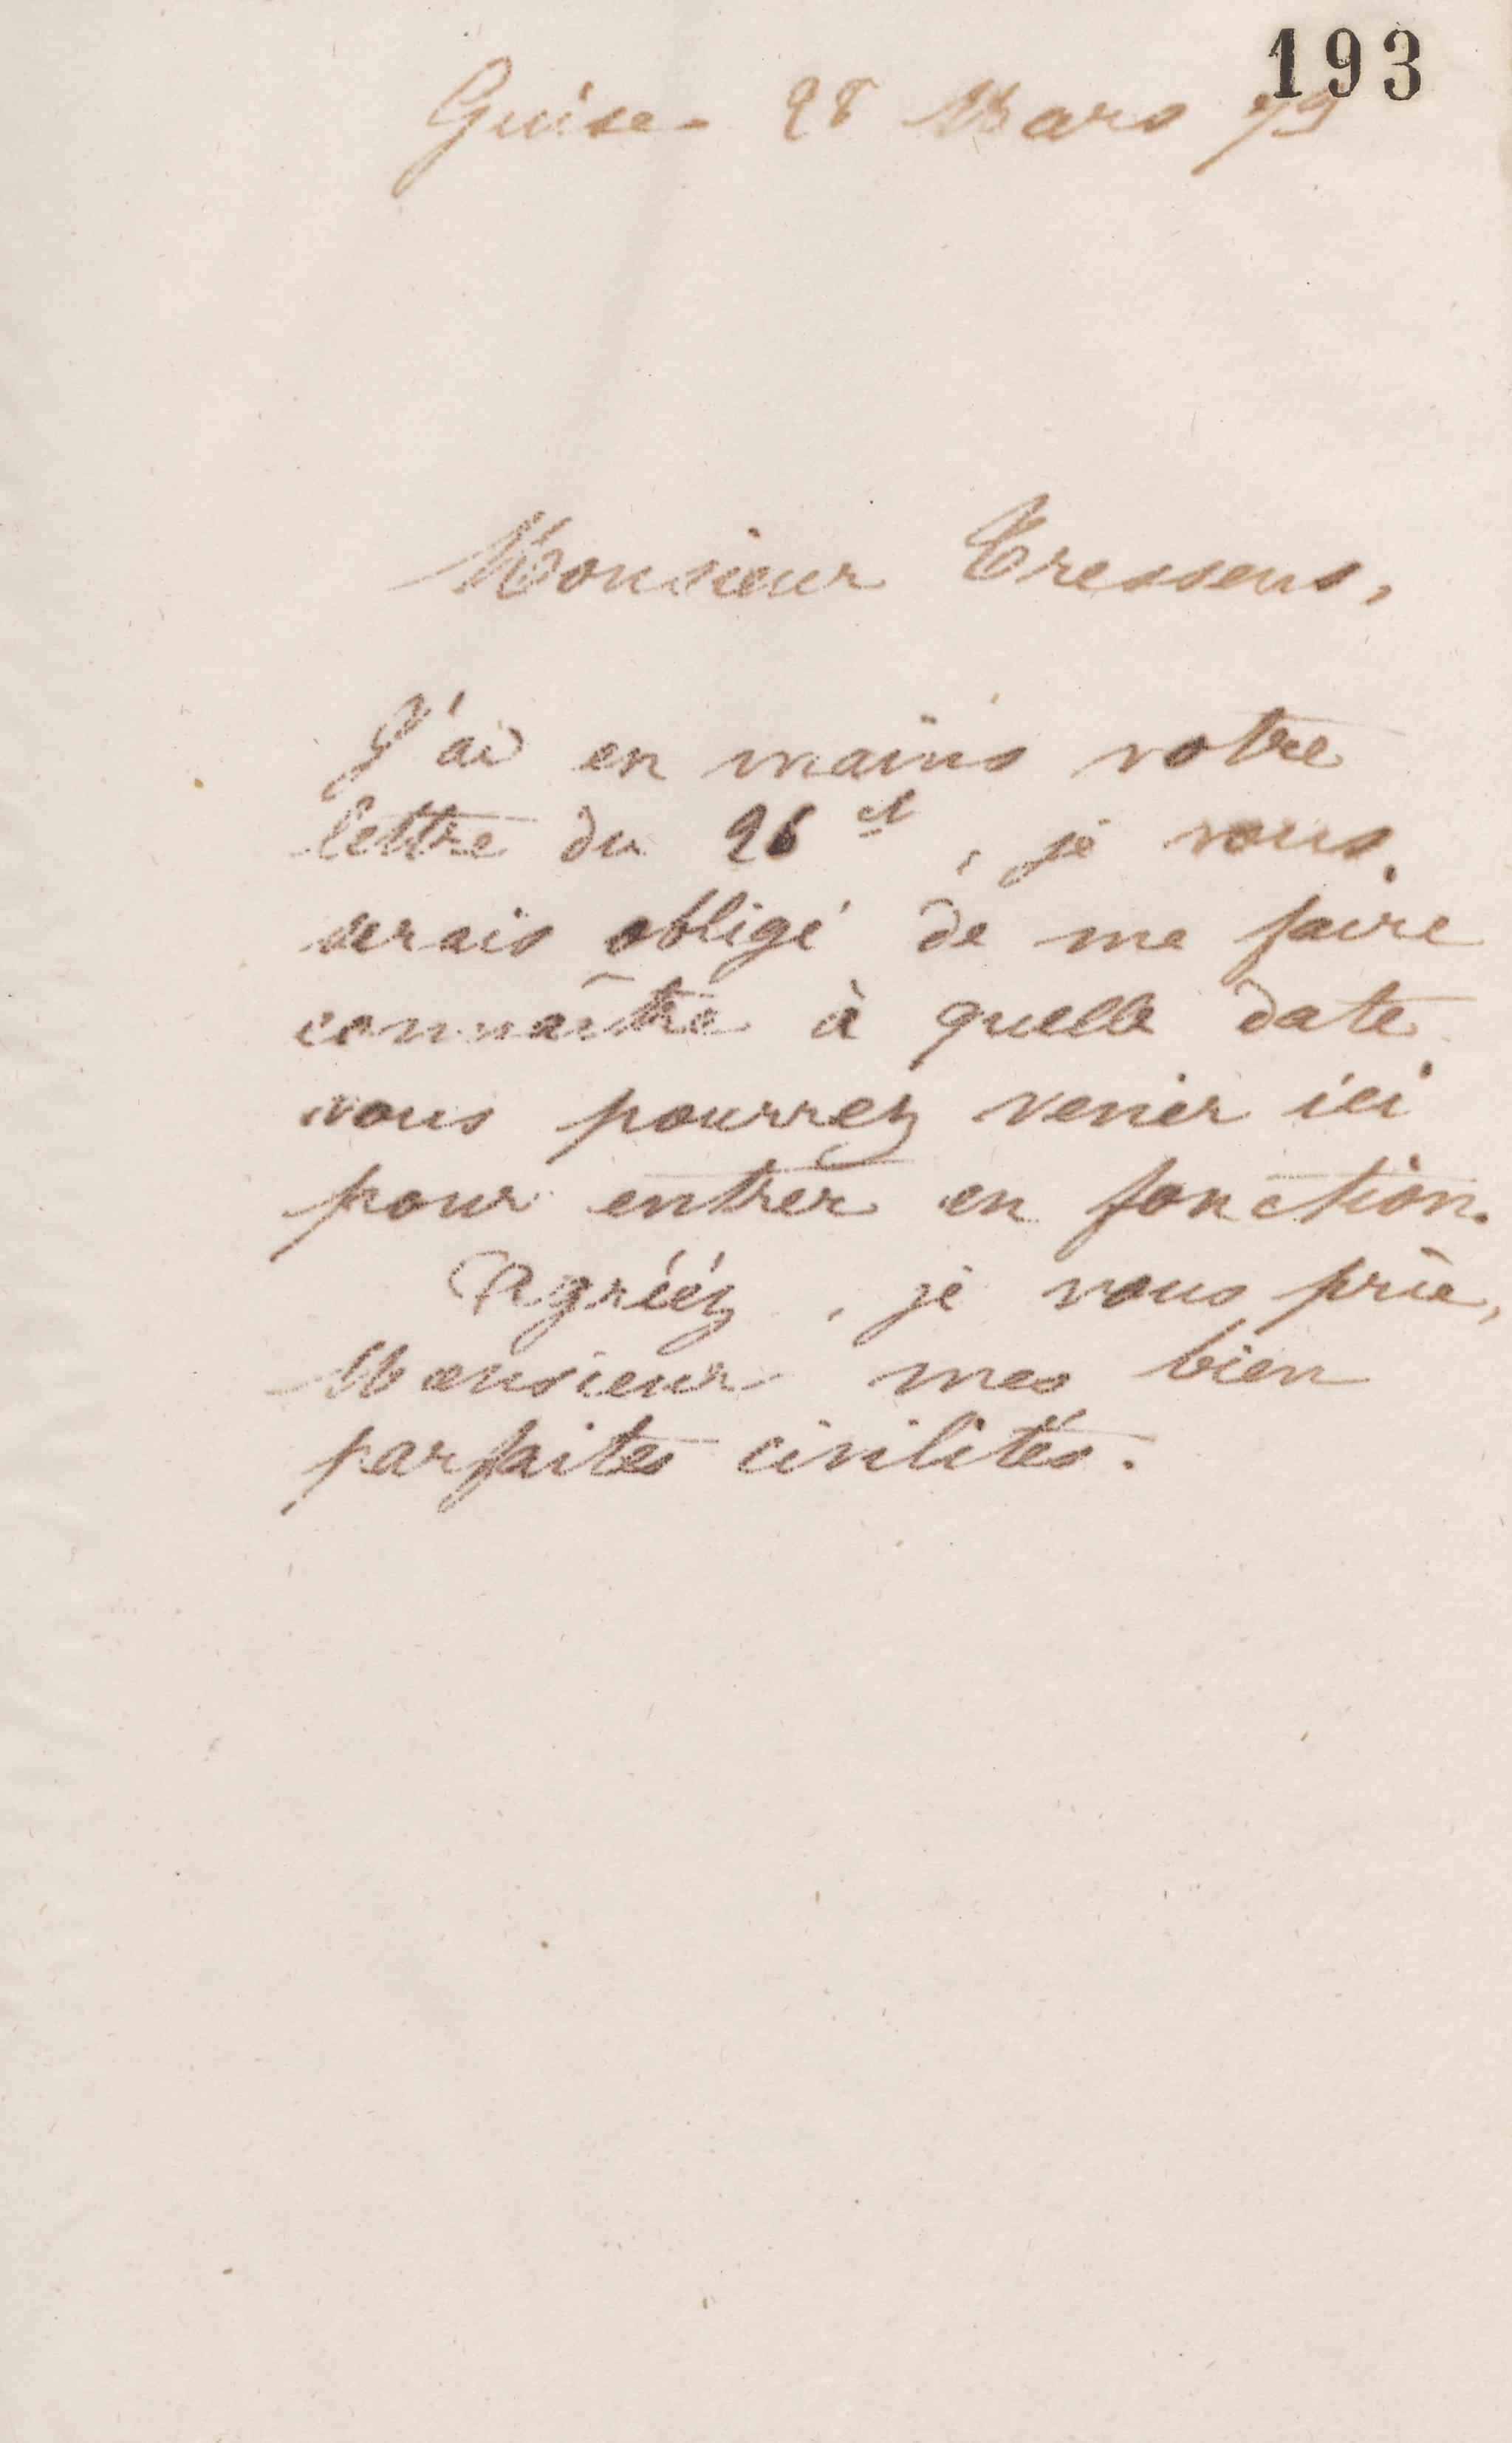 193
Guise 28 Mars 79
Monsieur Tressens,
J'ai en mains votre
lettre du 26 ct, je vous
serais obligé de me faire
connaître à quelle date
vous pourrez venir ici
pour entrer en fonction.
Agréez, je vous prie,
Monsieur mes bien
parfaites civilités.